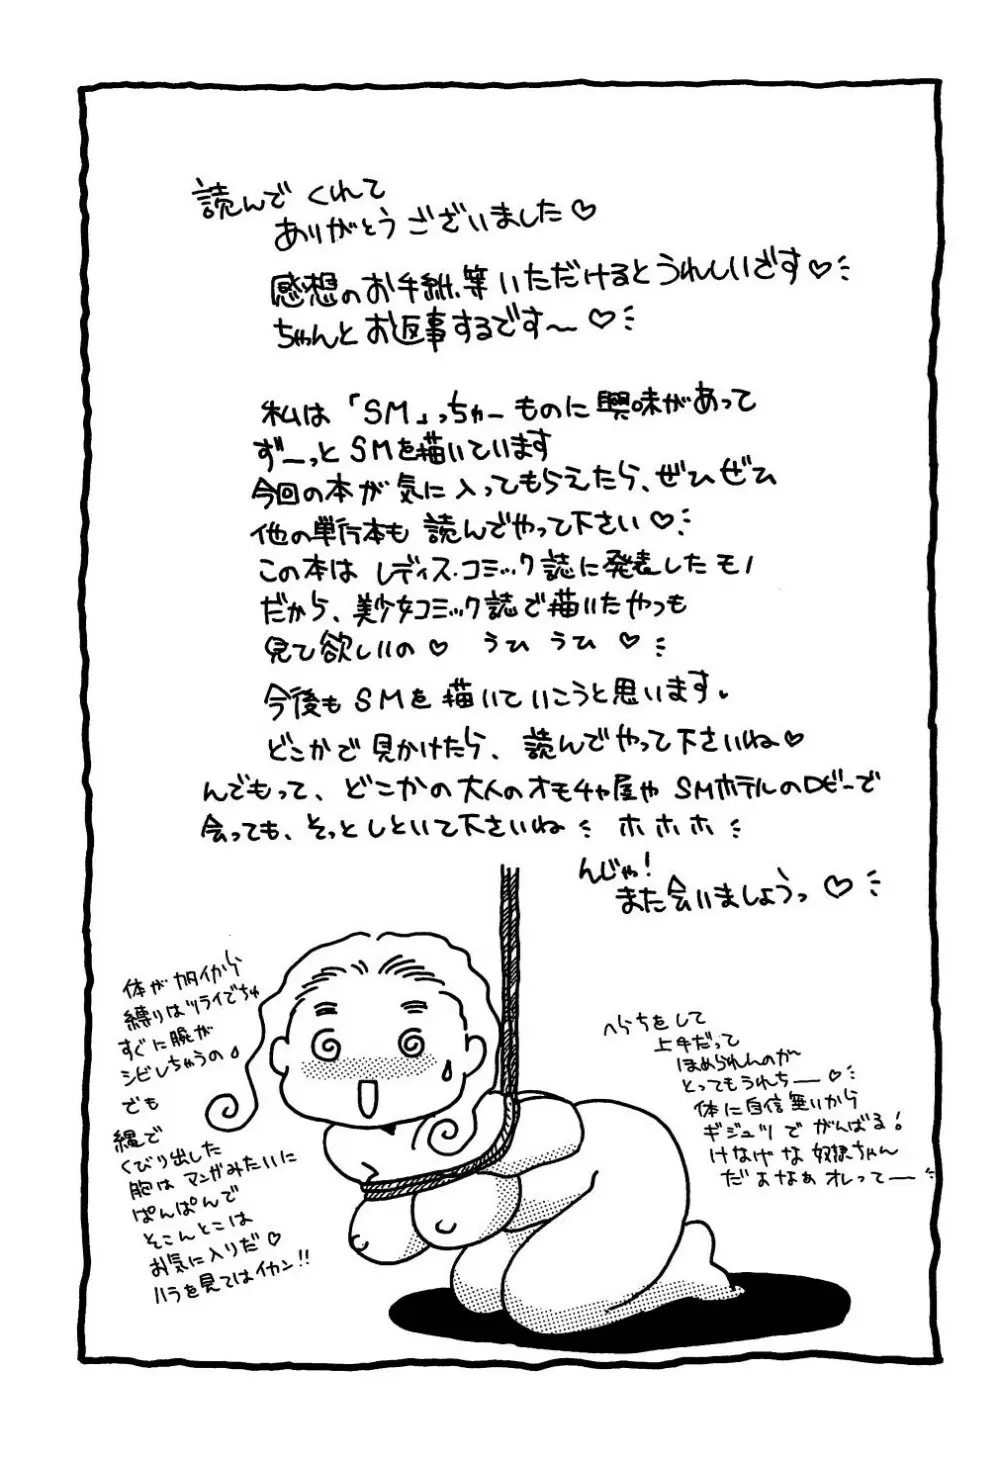 読んでくれて
ありがとうございました♡
感想のお手紙、等いただけるとうれしいざす♡
ちゃんとお返事するです〜♡
私は「SM」っちゅーものに興味があって
ずーっとSMを描いています
今回の本が気に入ってもらえたら、ぜひぜひ
他の単行本も読んでやって下さい♡
この本はレディス・コミック誌に発表したモノ
だから、美少女コミック誌で描いたやつも
見て欲しいの♡ うひうひ♡
今後もSMを描いていこうと思います。
どこかで見かけたら、読んでやって下さいね♡
んでもって、どこかの大人のオモチャ屋やSMホテルのロビーで
会っても、そっとしといて下さいね ホホホ
んじゃ!
また会いましょうっ♡
体がカタイから
縛りはツライでちゅ
すぐに腕が
シビレちゃうの。
でも
縄で
くびり出した
胸はマンガみたいに
ぱんぱんで
そこんとこは
お気に入りだ♡
ハラを見てはイカン!!
へらちをして
上手だって
ほめられんのが〜
とってもうれちー♡
体に自信無いから
ギジュツでがんばる!
けなげな奴隷ちゃん
だよなぁオレってー